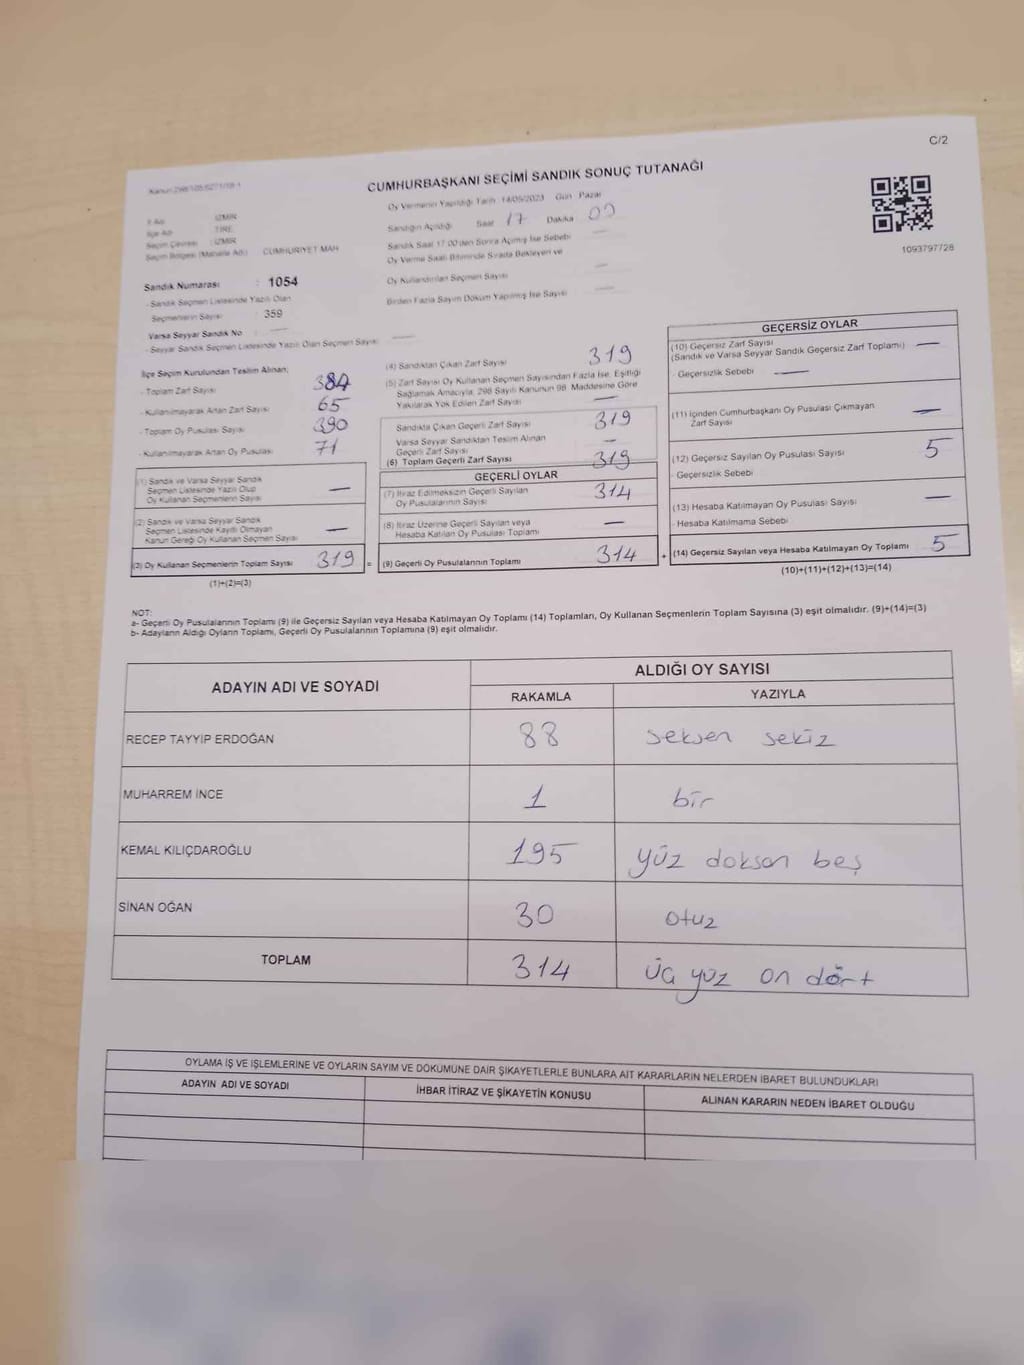 C/2
Kanun:298/105:6271/18-1
CUMHURBAŞKANI SEÇİMİ SANDIK SONUÇ TUTANAĞI
1093797728
İl Adı : İZMİR
İlçe Adı : TİRE
Seçim Çevresi : İZMİR
Seçim Bölgesi (Mahalle Adı) : CUMHURİYET MAH
Sandık Numarası : 1054
- Sandık Seçmen Listesinde Yazılı Olan
Seçmenlerin Sayısı : 359
Varsa Seyyar Sandık No : —
- Seyyar Sandık Seçmen Listesinde Yazılı Olan Seçmen Sayısı : —
Oy Vermenin Yapıldığı Tarih 14/05/2023 Gün Pazar
Sandığın Açıldığı Saat 17 Dakika 00
Sandık Saat 17:00'den Sonra Açılmış İse Sebebi —
Oy Verme Saati Bitiminde Sırada Bekleyen ve
Oy Kullandırılan Seçmen Sayısı —
Birden Fazla Sayım Döküm Yapılmış İse Sayısı —
İlçe Seçim Kurulundan Teslim Alınan;
- Toplam Zarf Sayısı 384
- Kullanılmayarak Artan Zarf Sayısı 65
- Toplam Oy Pusulası Sayısı 390
- Kullanılmayarak Artan Oy Pusulası 71
(1) Sandık ve Varsa Seyyar Sandık
Seçmen Listesinde Yazılı Olup
Oy Kullanan Seçmenlerin Sayısı —
(2) Sandık ve Varsa Seyyar Sandık
Seçmen Listesinde Kayıtlı Olmayan
Kanun Gereği Oy Kullanan Seçmen Sayısı —
(3) Oy Kullanan Seçmenlerin Toplam Sayısı 319
(1)+(2)=(3)
(4) Sandıktan Çıkan Zarf Sayısı 319
(5) Zarf Sayısı Oy Kullanan Seçmen Sayısından Fazla İse, Eşitliği
Sağlamak Amacıyla, 298 Sayılı Kanunun 98. Maddesine Göre
Yakılarak Yok Edilen Zarf Sayısı —
Sandıkta Çıkan Geçerli Zarf Sayısı 319
Varsa Seyyar Sandıktan Teslim Alınan
Geçerli Zarf Sayısı —
(6) Toplam Geçerli Zarf Sayısı 319
GEÇERLİ OYLAR
(7) İtiraz Edilmeksizin Geçerli Sayılan
Oy Pusulalarının Sayısı 314
(8) İtiraz Üzerine Geçerli Sayılan veya
Hesaba Katılan Oy Pusulası Toplamı —
= (9) Geçerli Oy Pusulalarının Toplamı 314
GEÇERSİZ OYLAR
(10) Geçersiz Zarf Sayısı
(Sandık ve Varsa Seyyar Sandık Geçersiz Zarf Toplamı) —
- Geçersizlik Sebebi —
(11) İçinden Cumhurbaşkanı Oy Pusulası Çıkmayan
Zarf Sayısı —
(12) Geçersiz Sayılan Oy Pusulası Sayısı 5
- Geçersizlik Sebebi
(13) Hesaba Katılmayan Oy Pusulası Sayısı —
- Hesaba Katılmama Sebebi
+ (14) Geçersiz Sayılan veya Hesaba Katılmayan Oy Toplamı 5
(10)+(11)+(12)+(13)=(14)
NOT:
a- Geçerli Oy Pusulalarının Toplamı (9) ile Geçersiz Sayılan veya Hesaba Katılmayan Oy Toplamı (14) Toplamları, Oy Kullanan Seçmenlerin Toplam Sayısına (3) eşit olmalıdır. (9)+(14)=(3)
b- Adayların Aldığı Oyların Toplamı, Geçerli Oy Pusulalarının Toplamına (9) eşit olmalıdır.
ADAYIN ADI VE SOYADI ALDIĞI OY SAYISI
RAKAMLA YAZIYLA
RECEP TAYYİP ERDOĞAN 88 seksen sekiz
MUHARREM İNCE 1 bir
KEMAL KILIÇDAROĞLU 195 yüz doksan beş
SİNAN OĞAN 30 otuz
TOPLAM 314 üç yüz on dört
OYLAMA İŞ VE İŞLEMLERİNE VE OYLARIN SAYIM VE DÖKÜMÜNE DAİR ŞİKAYETLERLE BUNLARA AİT KARARLARIN NELERDEN İBARET BULUNDUKLARI
ADAYIN ADI VE SOYADI İHBAR İTİRAZ VE ŞİKAYETİN KONUSU ALINAN KARARIN NEDEN İBARET OLDUĞU